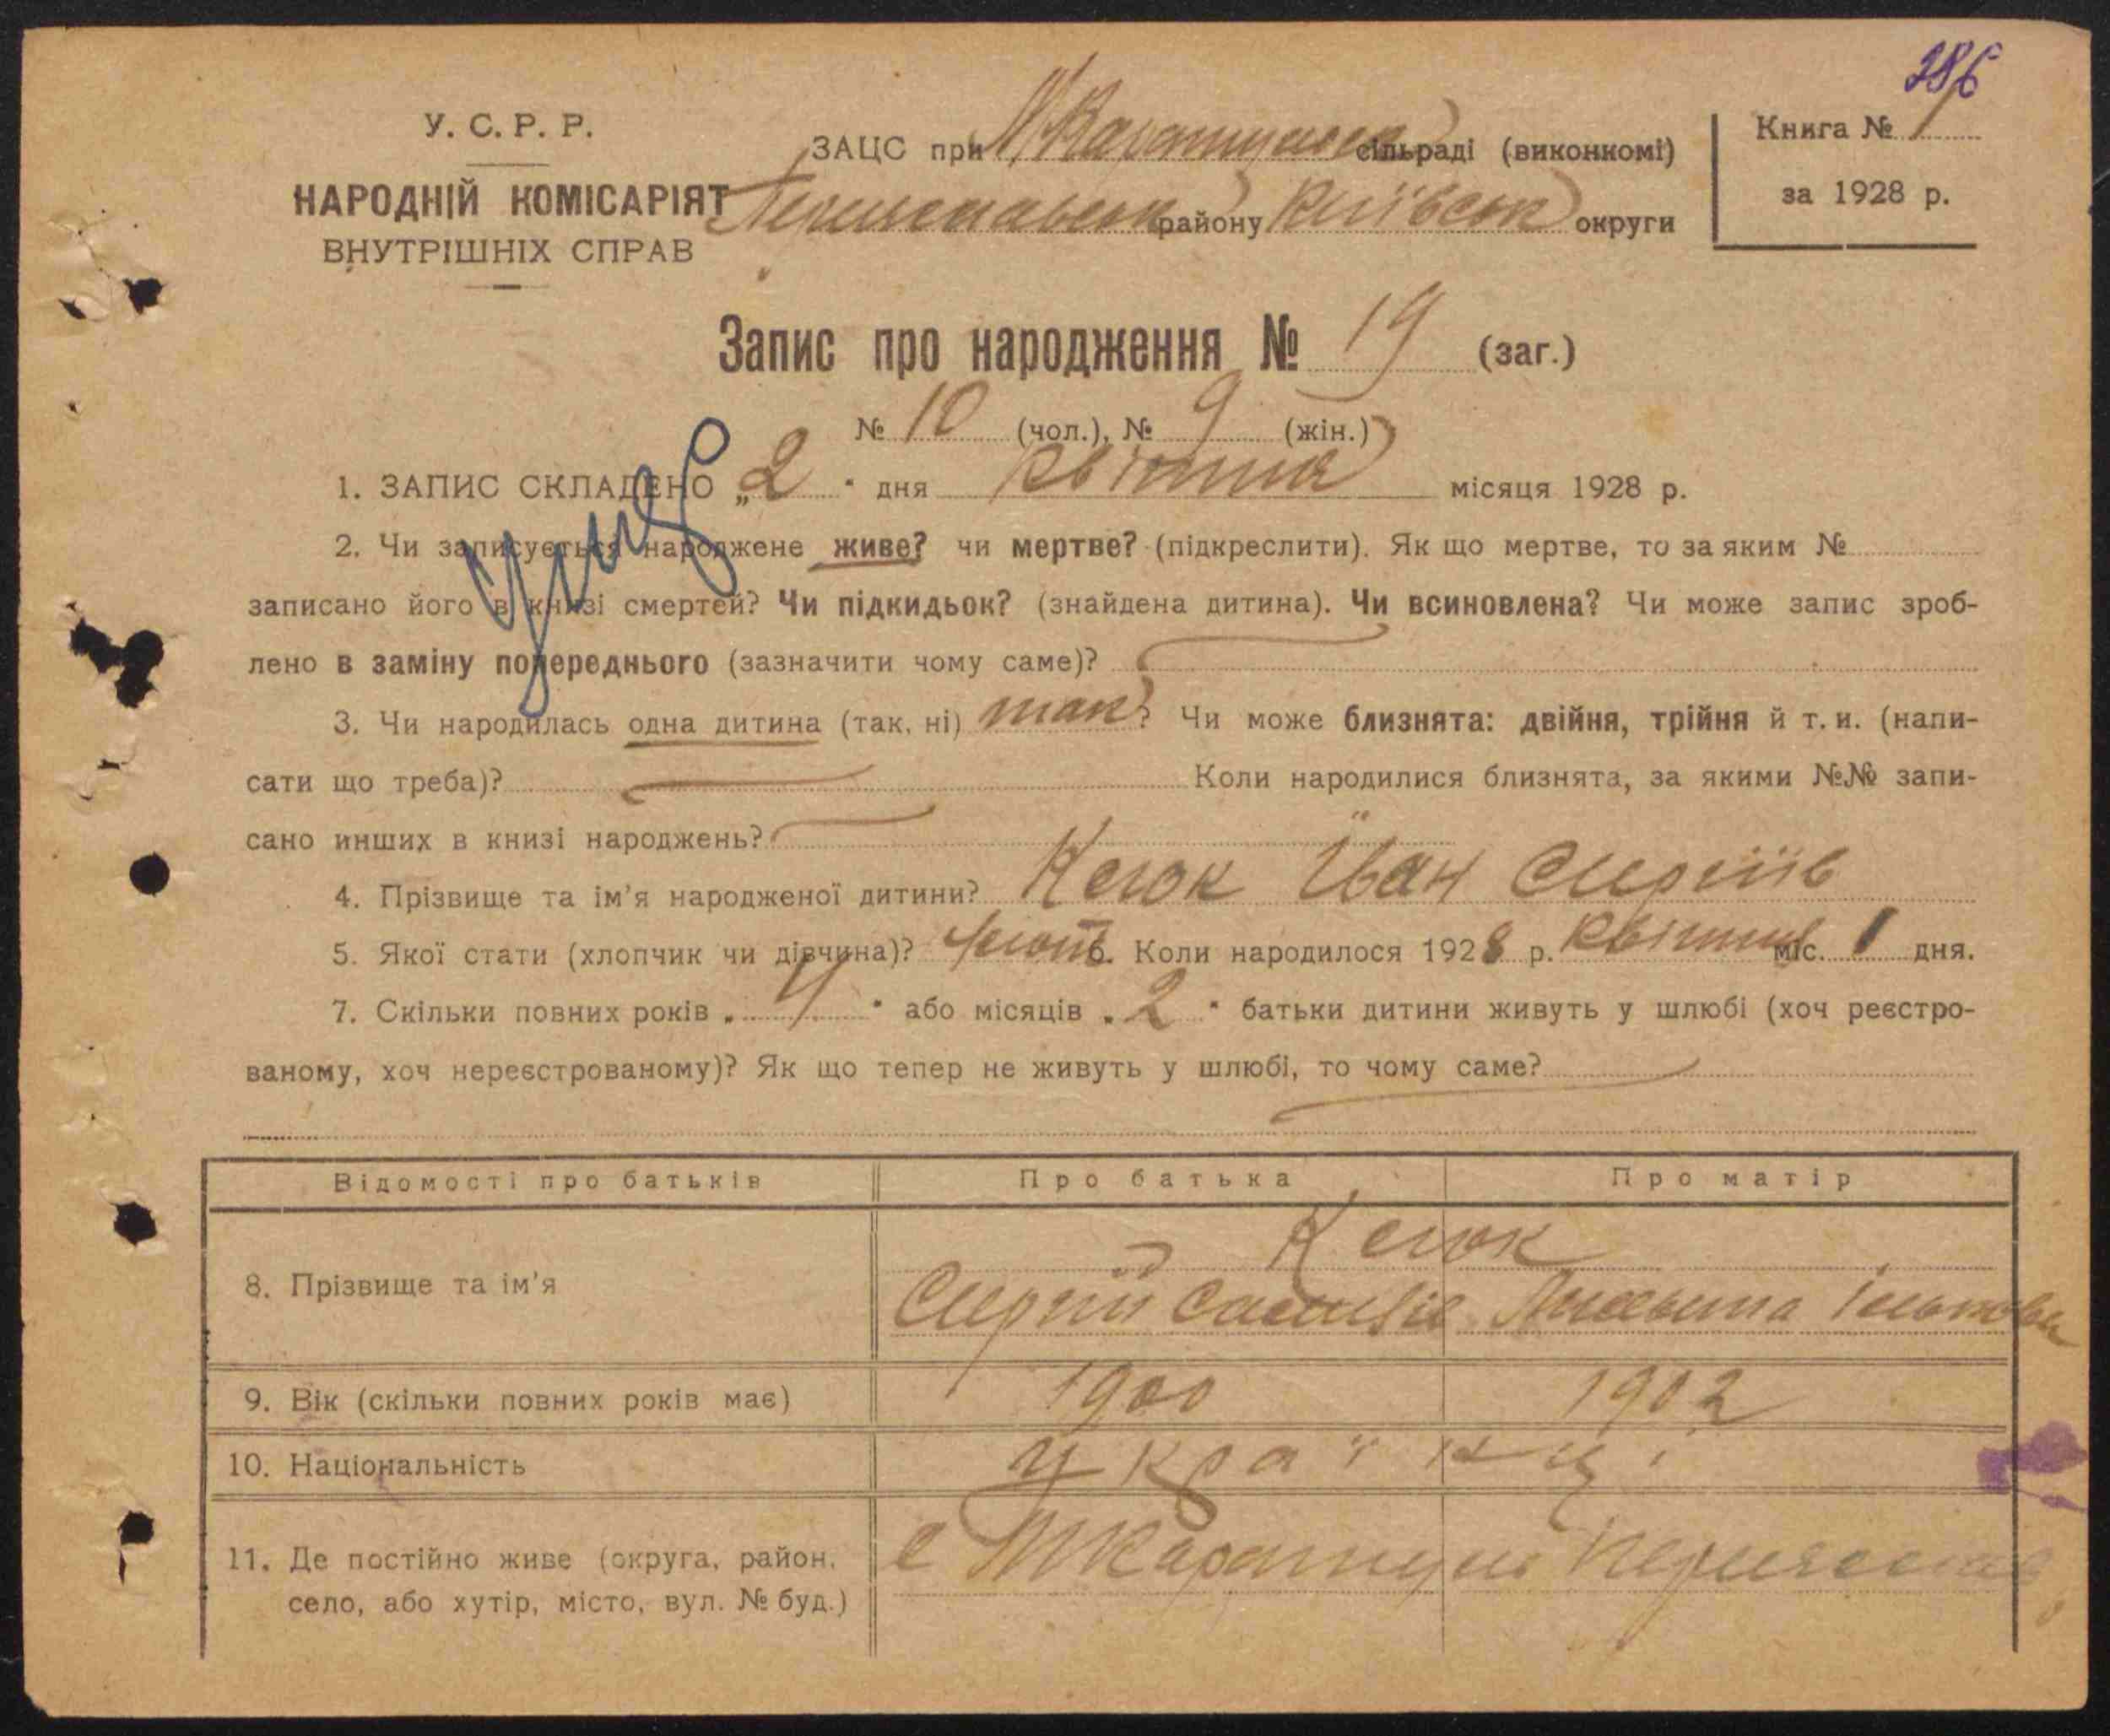 386
У. С. Р. Р.
НАРОДНІЙ КОМІСАРІЯТ
ВНУТРІШНІХ СПРАВ
ЗАЦС при сільраді (виконкомі)
району Київськ округи
Книга № 1
за 1928 р.
Запис про народження № 19 (заг.)
№ 10 (чол.), № 9 (жін.)
1. ЗАПИС СКЛАДЕНО „2" дня квітня місяця 1928 р.
2. Чи записується народжене живе? чи мертве? (підкреслити). Як що мертве, то за яким №
записано його в книзі смертей? Чи підкидьок? (знайдена дитина). Чи всиновлена? Чи може запис зроб-
лено в заміну попереднього (зазначити чому саме)?
3. Чи народилась одна дитина (так, ні) так? Чи може близнята: двійня, трійня й т. и. (напи-
сати що треба)? Коли народилися близнята, за якими №№ запи-
сано инших в книзі народжень?
4. Прізвище та ім'я народженої дитини? Кегок Іван Сергіїв
5. Якої стати (хлопчик чи дівчина)? 6. Коли народилося 1928 р. квітня міс. 1 дня.
7. Скільки повних років „4" або місяців „2" батьки дитини живуть у шлюбі (хоч реєстро-
ваному, хоч нереєстрованому)? Як що тепер не живуть у шлюбі, то чому саме?
Відомості про батьків Про батька Про матір
Кегок
8. Прізвище та ім'я Сергій
9. Вік (скільки повних років має) 1900 1902
10. Національність українці
11. Де постійно живе (округа, район,
село, або хутір, місто, вул. № буд.)